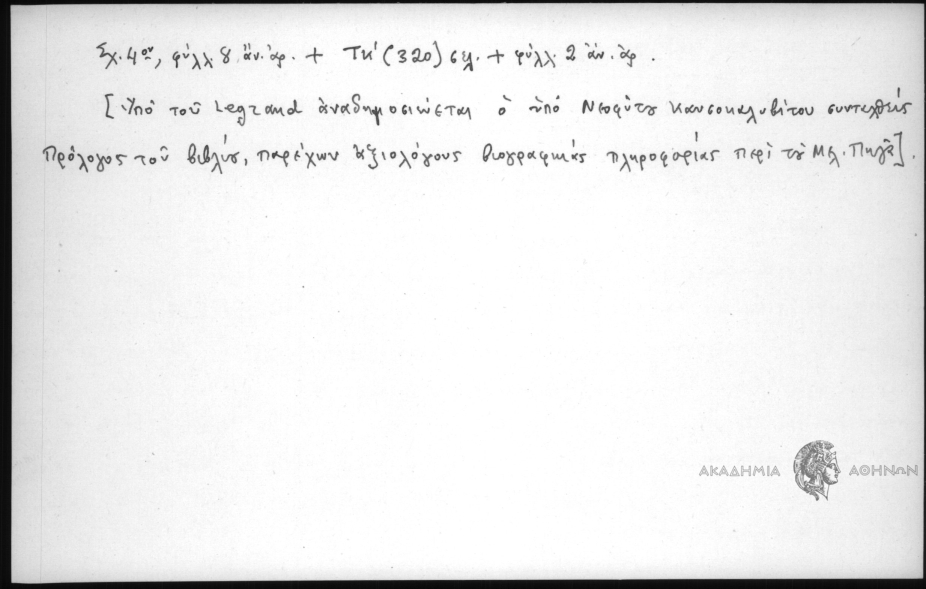 Σχ. 4ον, φύλλ 8 ἀν. ἀρ. + ΤΚ' (320) σελ. + φύλλ 2 ἀν. ἀρ.
[Ὑπὸ τοῦ Legrand ἀναδημοσιεύεται ὁ ὑπὸ Νεοφύτου Καυσοκαλυβίτου συνταχθεὶς
πρόλογος τοῦ βιβλίου, παρέχων ἀξιολόγους βιογραφικὰς πληροφορίας περὶ τοῦ Μελ. Πηγᾶ].
ΑΚΑΔΗΜΙΑ ΑΘΗΝΩΝ